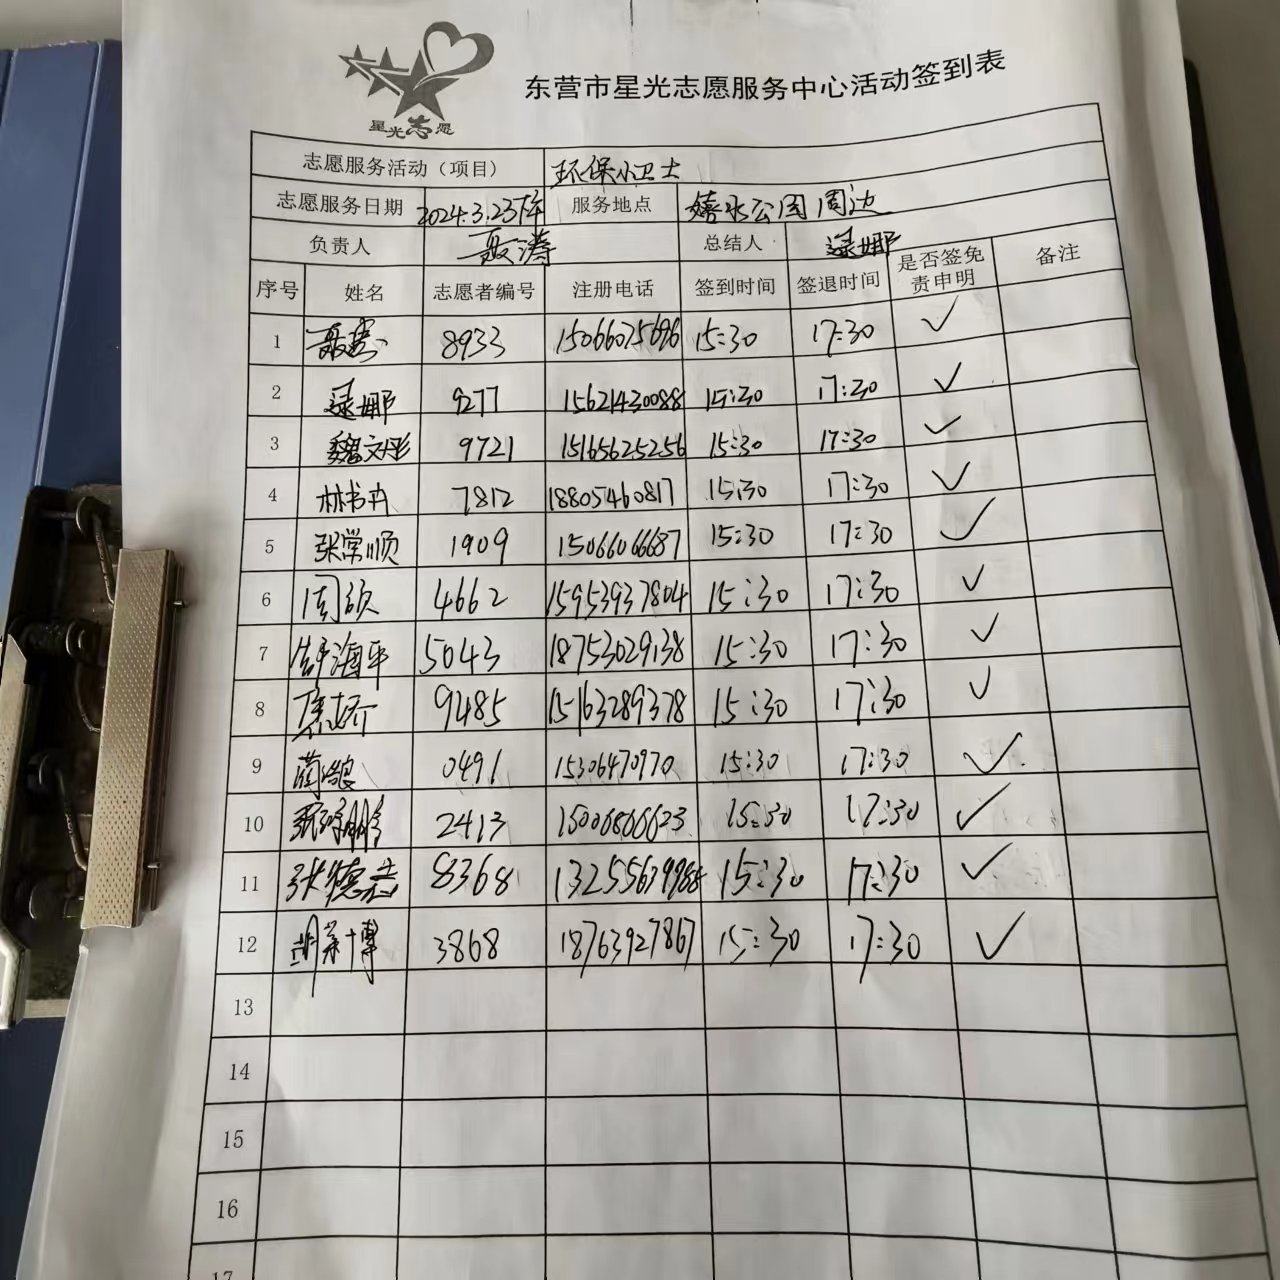 星光志愿
东营市星光志愿服务中心活动签到表
志愿服务活动（项目） 环保小卫士
志愿服务日期 2024.3.23下午 服务地点 嬉水公园周边
负责人 聂涛 总结人 逯娜
序号 姓名 志愿者编号 注册电话 签到时间 签退时间 是否签免责申明 备注
1 8933 15066075696 15:30 17:30 ✓
2 逯娜 9277 15621430088 15:30 17:30 ✓
3 魏文彤 9721 15165625256 15:30 17:30 ✓
4 林书卉 7812 18805460817 15:30 17:30 ✓
5 张常顺 1909 15066066687 15:30 17:30 ✓
6 周颀 4662 15953937804 15:30 17:30 ✓
7 舒海平 5043 18753029138 15:30 17:30 ✓
8 9485 15163289378 15:30 17:30 ✓
9 0491 15306470970 15:30 17:30 ✓
10 2413 15006866623 15:30 17:30 ✓
11 张德志 8368 13255639988 15:30 17:30 ✓
12 3868 18763927867 15:30 17:30 ✓
13
14
15
16
17